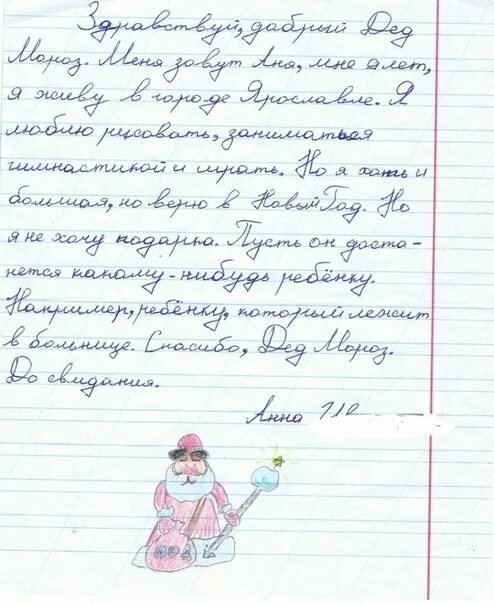 Здравствуй, добрый Дед
Мороз. Меня зовут Аня, мне лет,
я живу в городе Ярославле. Я
люблю рисовать, заниматься
гимнастикой и играть. Но я хоть и
большая, но верю в Новый Год. Но
я не хочу подарка. Пусть он доста-
нется какому-нибудь ребёнку.
Например, ребёнку, который лежит
в больнице. Спасибо, Дед Мороз.
До свидания.
Анна